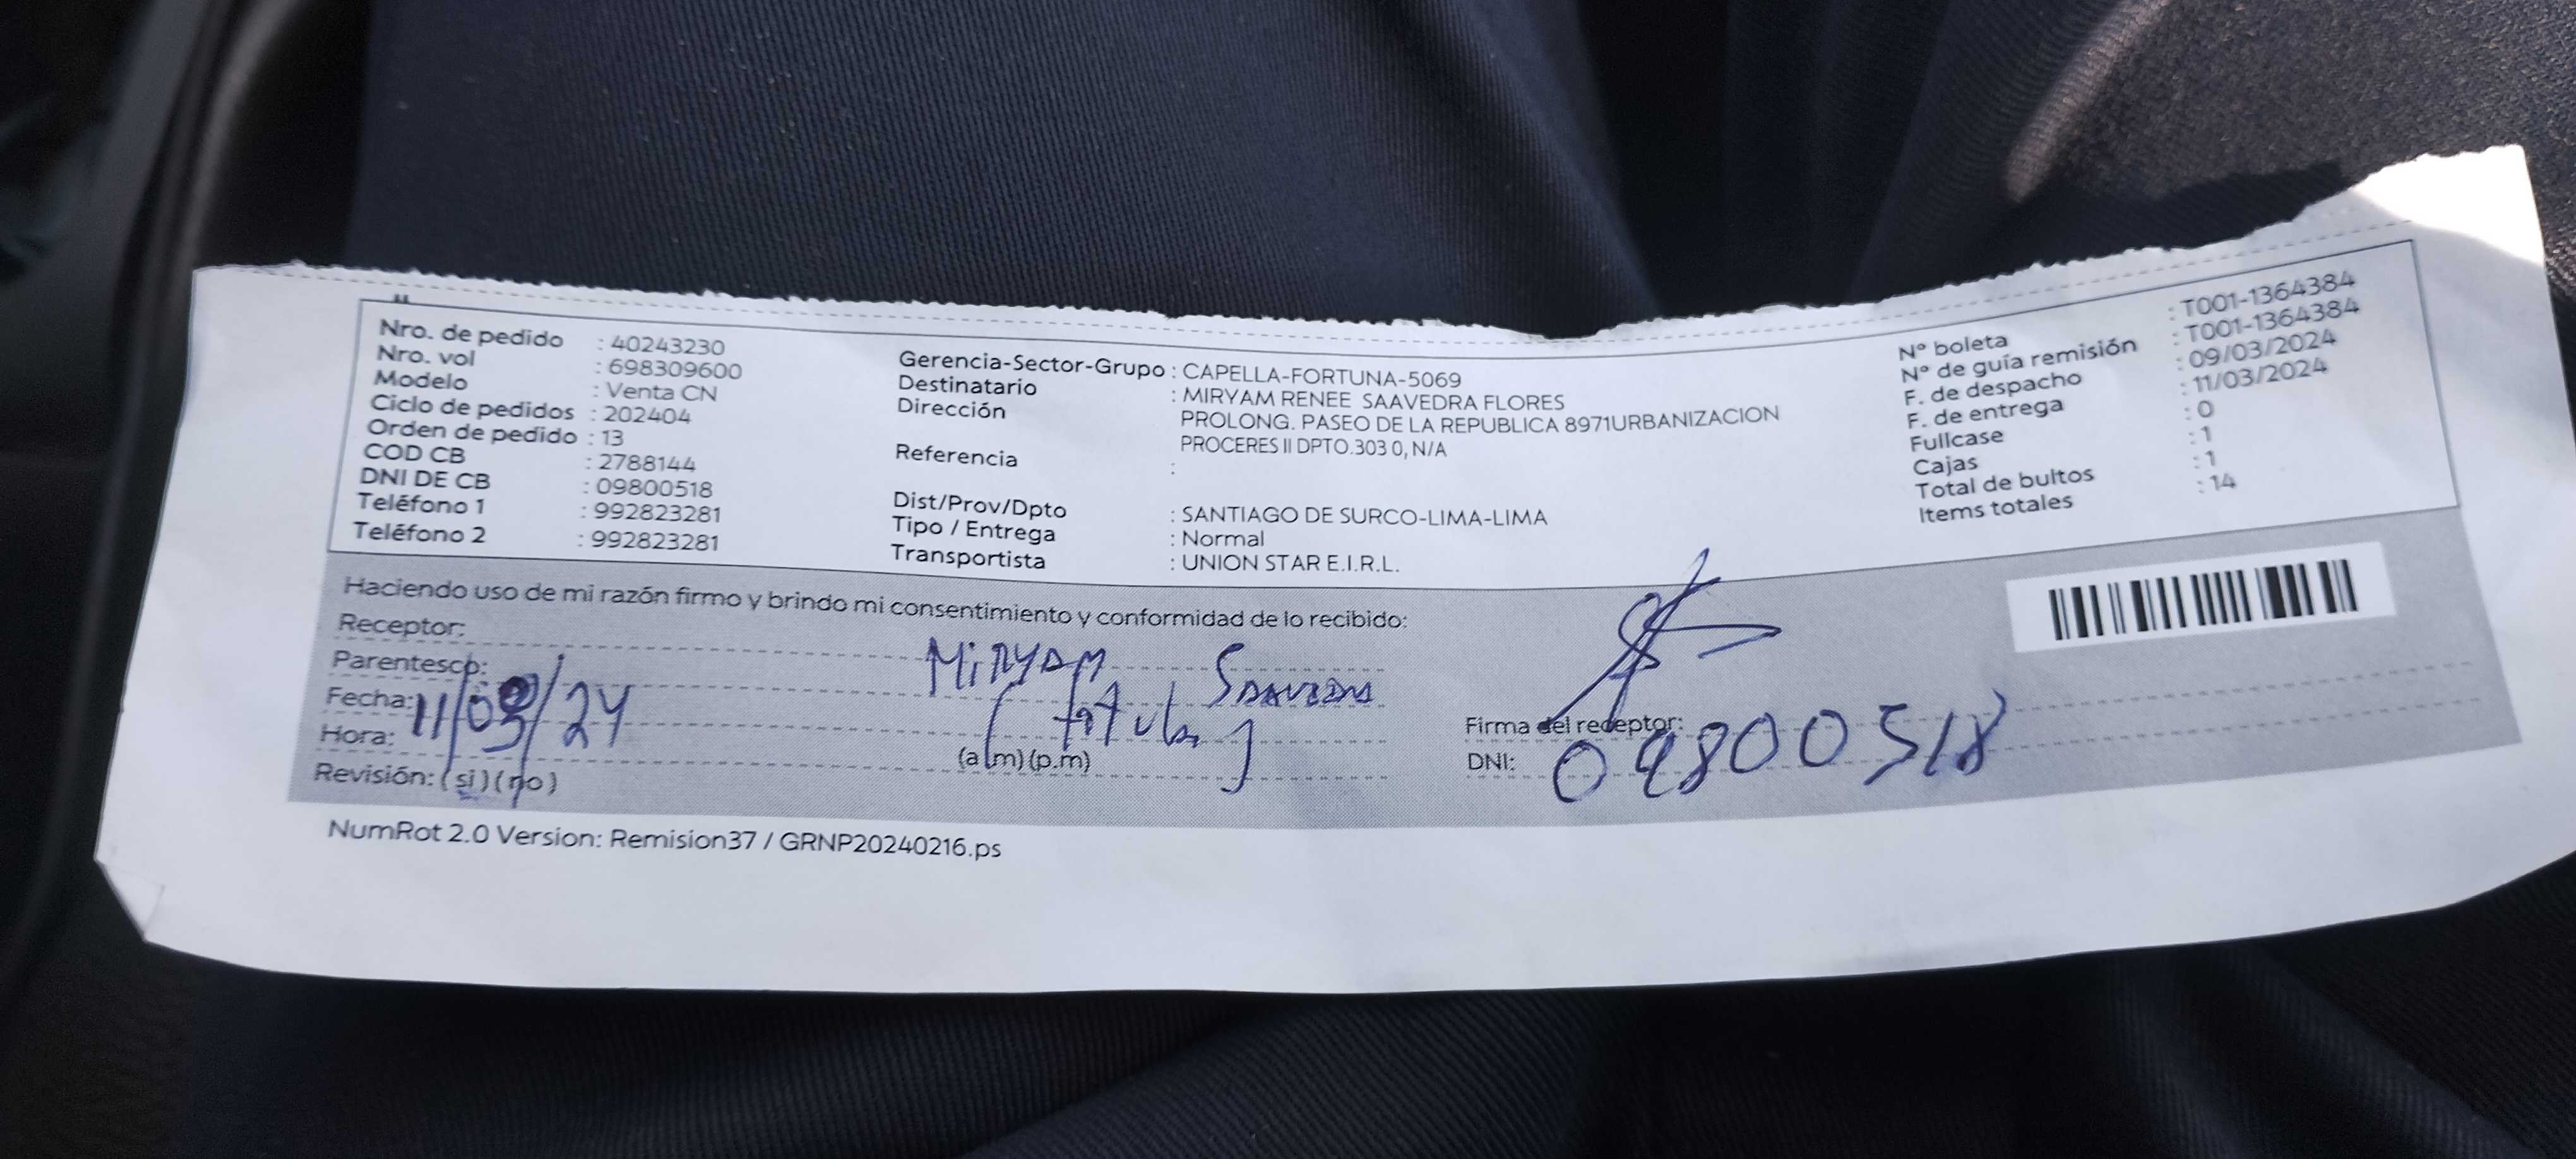 Nro. de pedido : 40243230
Nro. vol : 698309600
Modelo : Venta CN
Ciclo de pedidos : 202404
Orden de pedido : 13
COD CB : 2788144
DNI DE CB : 09800518
Teléfono 1 : 992823281
Teléfono 2 : 992823281
Gerencia-Sector-Grupo : CAPELLA-FORTUNA-5069
Destinatario : MIRYAM RENEE SAAVEDRA FLORES
Dirección PROLONG. PASEO DE LA REPUBLICA 8971URBANIZACION
PROCERES II DPTO.303 0, N/A
Referencia :
Dist/Prov/Dpto : SANTIAGO DE SURCO-LIMA-LIMA
Tipo / Entrega : Normal
Transportista : UNION STAR E.I.R.L.
N° boleta : T001-1364384
N° de guía remisión : T001-1364384
F. de despacho : 09/03/2024
F. de entrega : 11/03/2024
Fullcase : 0
Cajas : 1
Total de bultos : 1
Items totales : 14
Haciendo uso de mi razón firmo y brindo mi consentimiento y conformidad de lo recibido:
Receptor: MiRYAM
Parentesco:
Fecha: 11/03/24
Hora: (a.m)(p.m)
Revisión: (si) (no)
Firma del receptor:
DNI: 09800518
NumRot 2.0 Version: Remision37 / GRNP20240216.ps